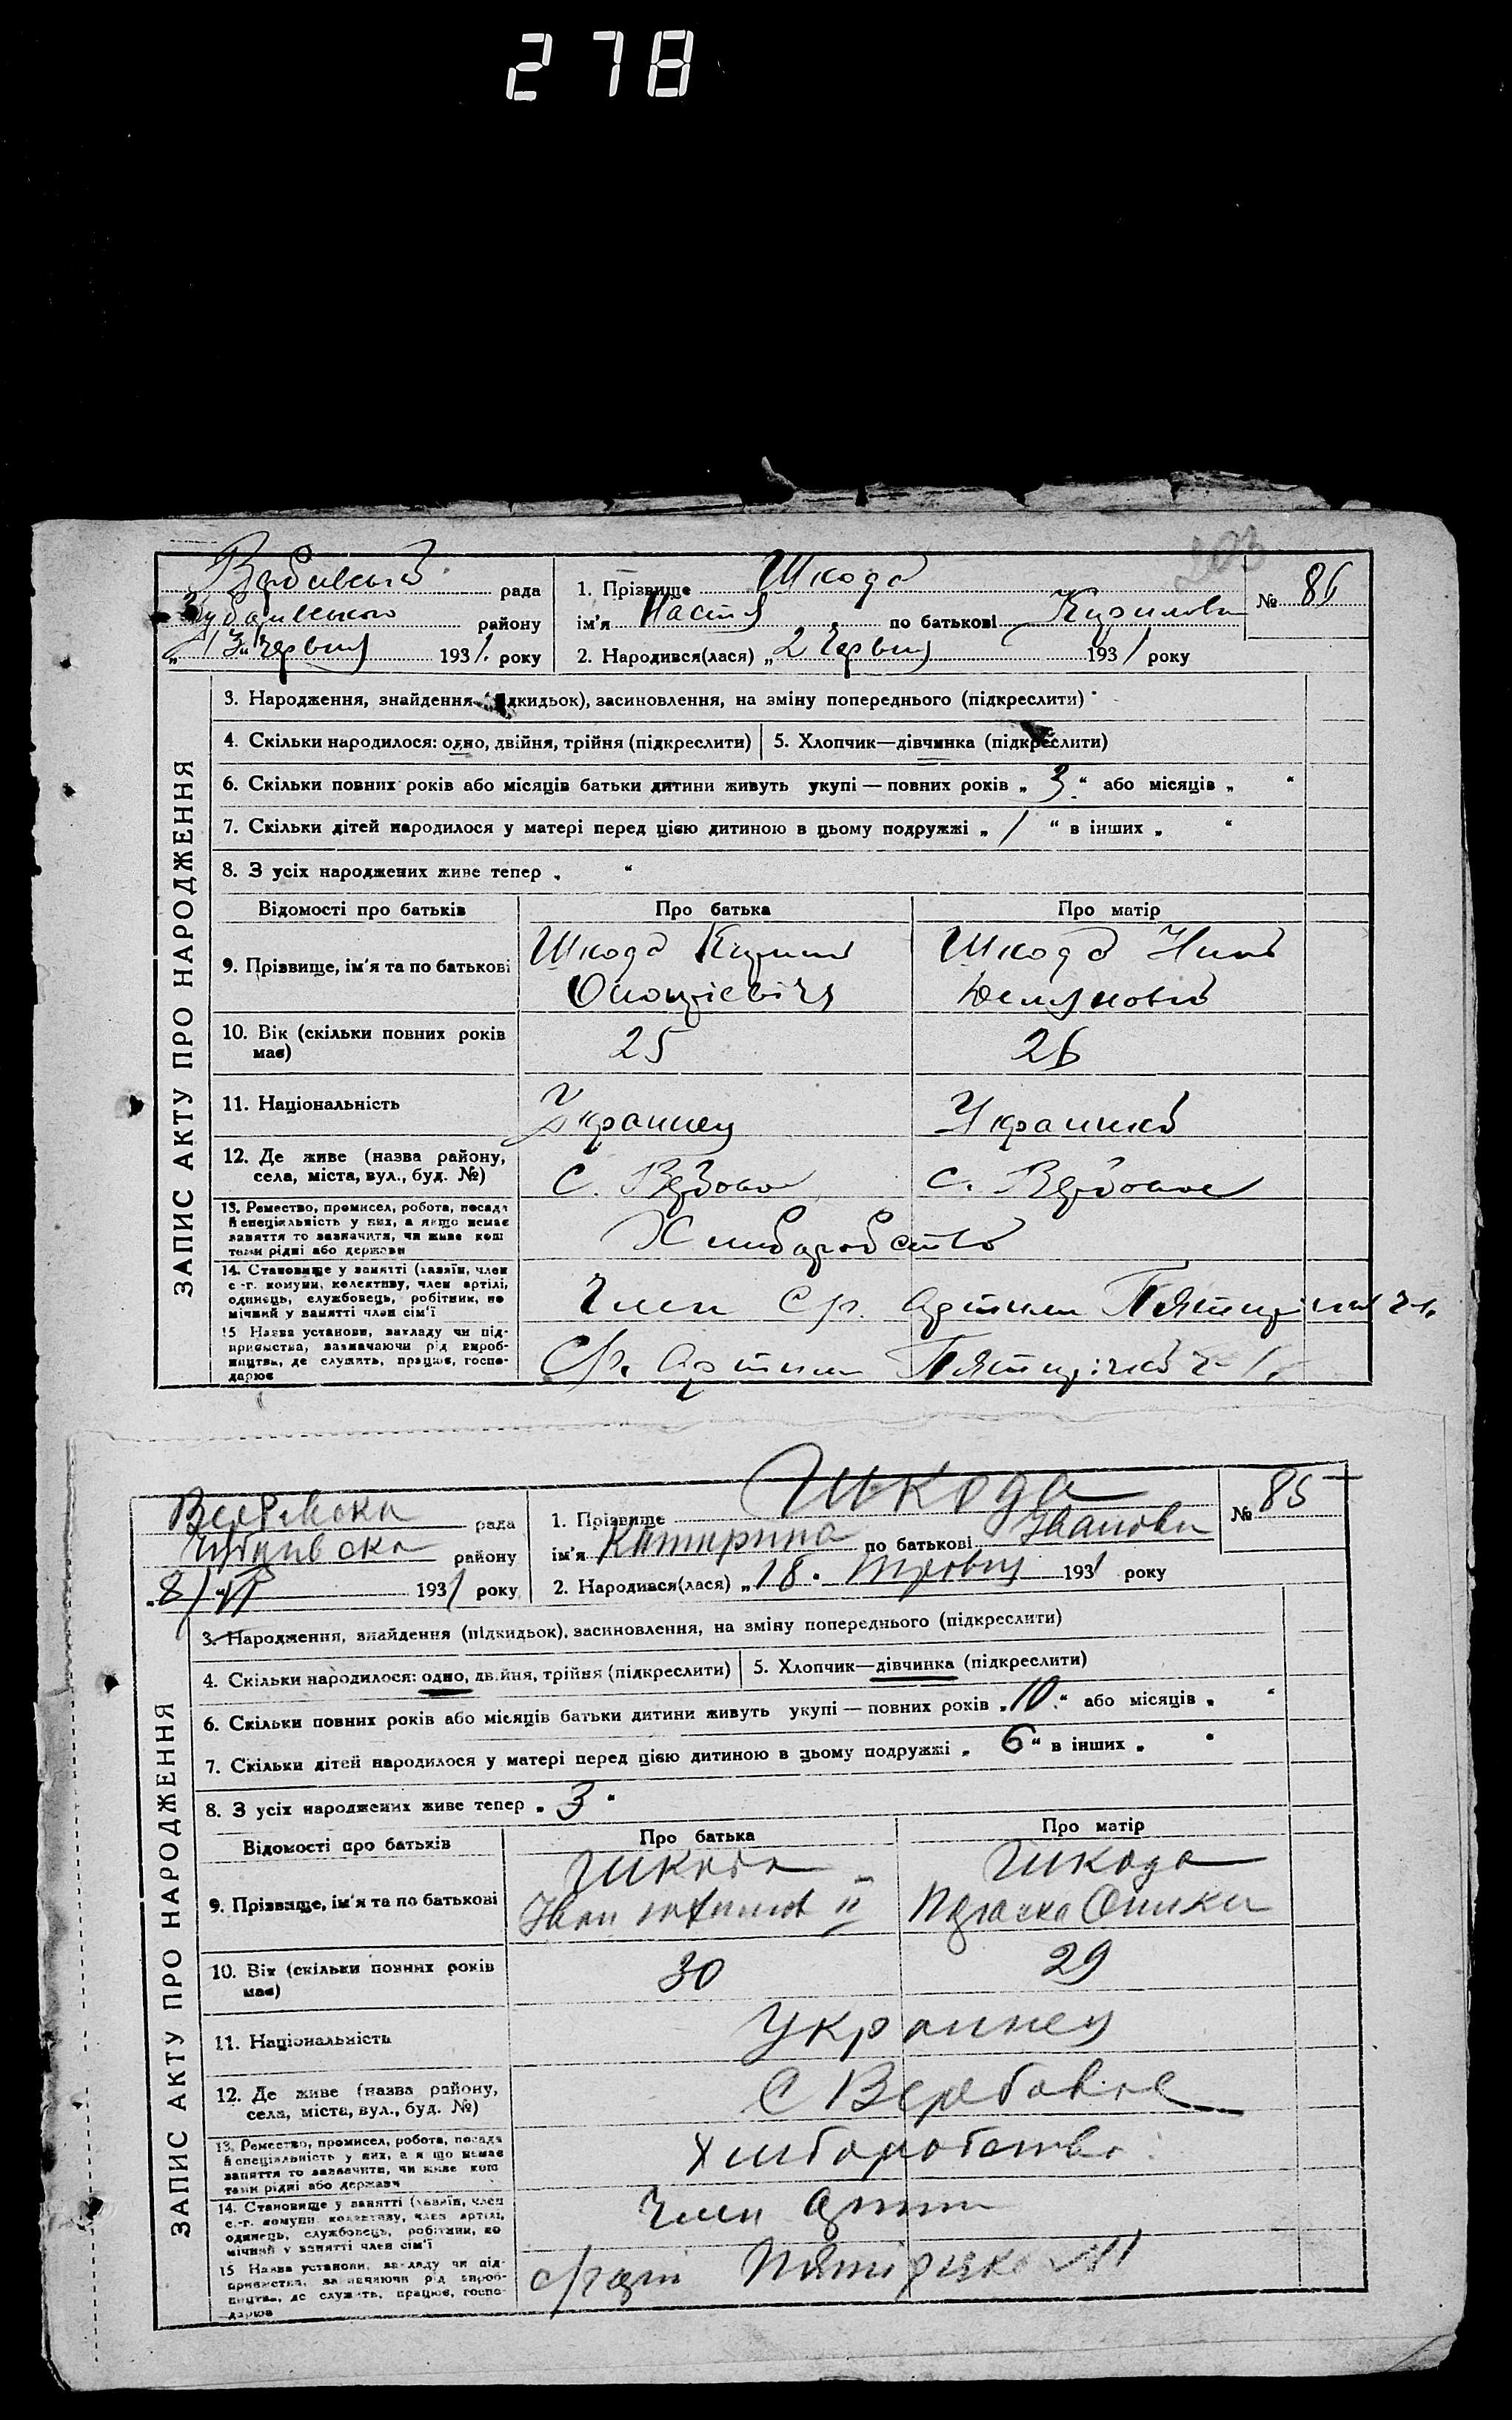 278
203
рада 1. Прізвище Шкода № 86
району ім'я Настя по батькові Кириловн
„ 3 Червня 1931. року 2. Народився(лася) „ 2 Червня 1931 року
ЗАПИС АКТУ ПРО НАРОДЖЕННЯ
3. Народження, знайдення дкидьок), засиновлення, на зміну попереднього (підкреслити)
4. Скільки народилося: одно, двійня, трійня (підкреслити) 5. Хлопчик—дівчинка (підкреслити)
6. Скільки повних років або місяців батьки дитини живуть укупі — повних років „ 3 “ або місяців „ “
7. Скільки дітей народилося у матері перед цією дитиною в цьому подружжі „ 1 “ в інших „ “
8. З усіх народжених живе тепер „ “
Відомості про батьків Про батька Про матір
9. Прізвище, ім'я та по батькові Шкода Кирило Шкода
10. Вік (скільки повних років має) 25 26
11. Національність Украинец Украинка
12. Де живе (назва району, села, міста, вул., буд. №) С. Вербове С. Вербове
13. Ремество, промисел, робота, посада й спеціяльність у них, а якщо немає заняття то зазначити, чи живе коштами рідні або держави Хлиборобство
14. Становище у занятті (хазяїн, член с.-г. комуни, колективу, член артілі, одинець, службовець, робітник, помічний у занятті член сім'ї Член С/г. Артили Пятирічка
15 Назва установи, закладу чи підприємства, зазначаючи рід виробництва, де служить, працює, господарює С/г. Артили Пятирічка
рада 1. Прізвище Шкода № 85
району ім'я Катирина по батькові Івановн
„ 8/VI 1931 року 2. Народився(лася) „ 18. Травня 1931 року
ЗАПИС АКТУ ПРО НАРОДЖЕННЯ
3. Народження, знайдення (підкидьок), засиновлення, на зміну попереднього (підкреслити)
4. Скільки народилося: одно, двійня, трійня (підкреслити) 5. Хлопчик—дівчинка (підкреслити)
6. Скільки повних років або місяців батьки дитини живуть укупі — повних років „ 10 “ або місяців „ “
7. Скільки дітей народилося у матері перед цією дитиною в цьому подружжі „ 6 “ в інших „ “
8. З усіх народжених живе тепер „ 3 “
Відомості про батьків Про батька Про матір
9. Прізвище, ім'я та по батькові Шкода Шкода
Іван
10. Вік (скільки повних років має) 30 29
11. Національність Украинец
12. Де живе (назва району, села, міста, вул., буд. №) С Вербовое
13. Ремество, промисел, робота, посада й спеціяльність у них, а якщо немає заняття то зазначити, чи живе коштами рідні або держави Хлиборобство
14. Становище у занятті (хазяїн, член с.-г. комуни, колективу, член артілі, одинець, службовець, робітник, помічний у занятті член сім'ї Член Арти
15 Назва установи, закладу чи підприємства, зазначаючи рід виробництва, де служить, працює, господарює с/г арт Пятирічка №1